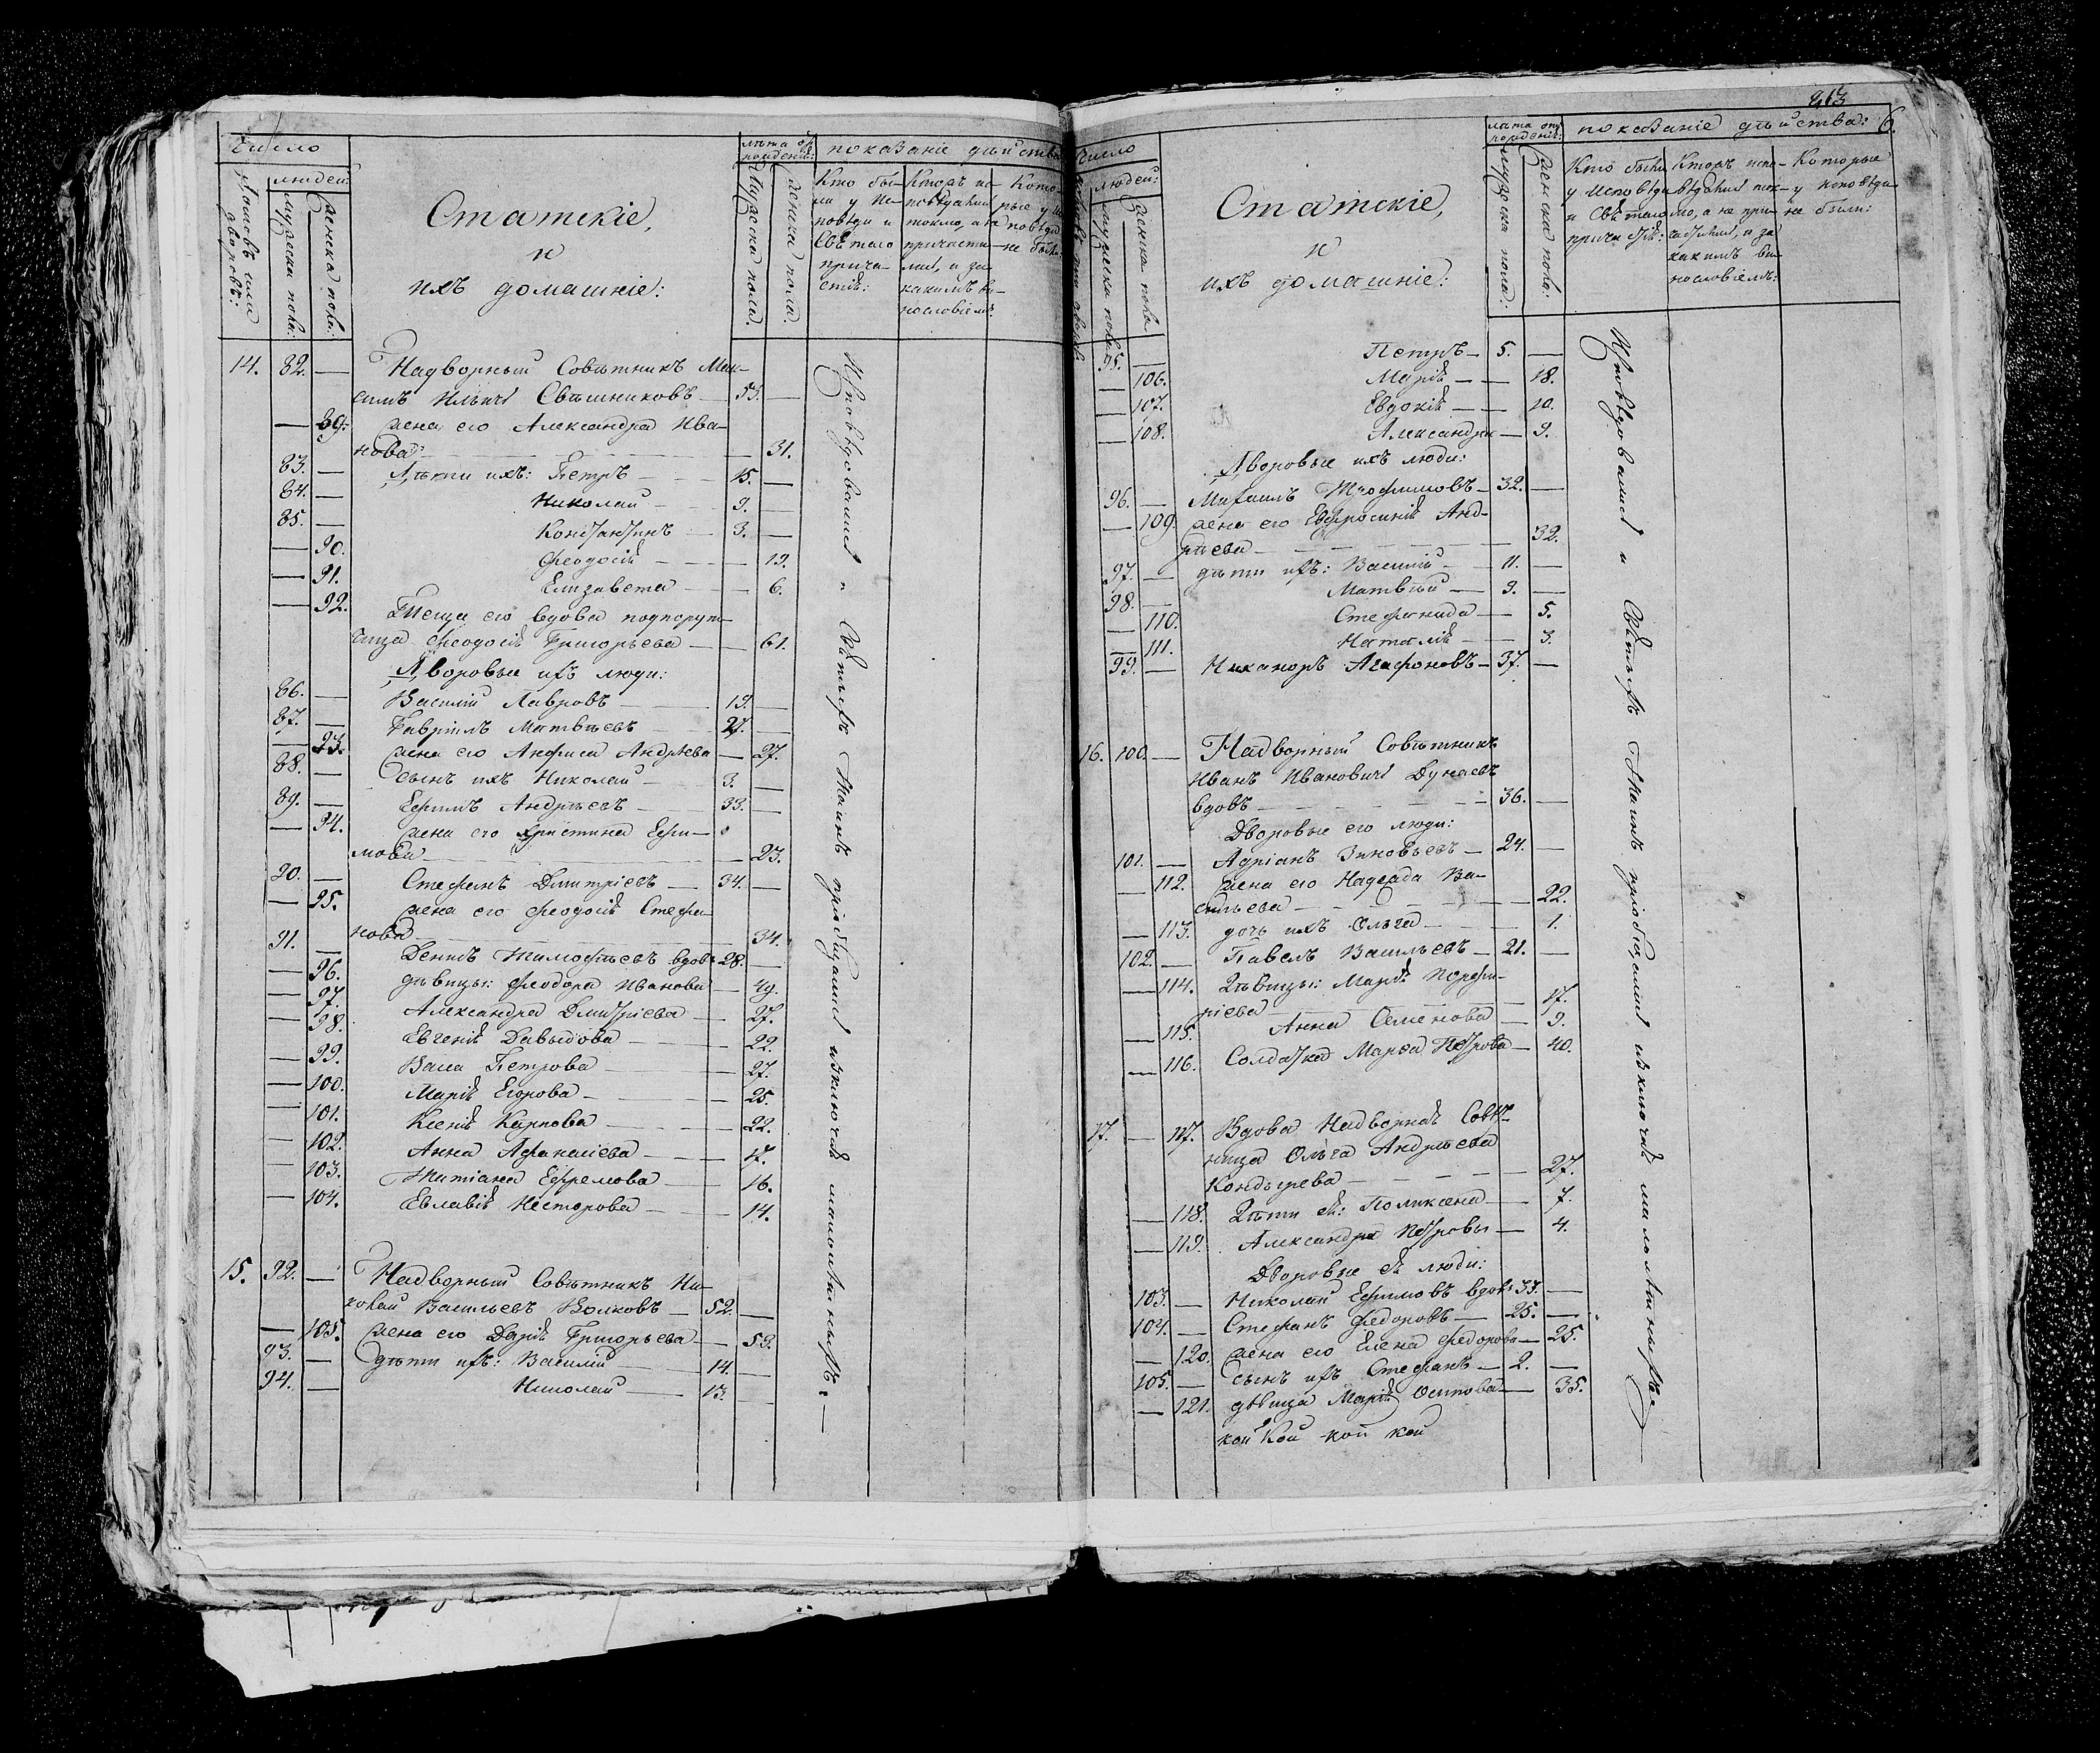 Число
людей:
мужеска пола:
женска пола:
Статскіе,
и
ихъ домашніе:
лѣта от рожденія:
Мужеска пола.
женска пола.
показаніе дѣйства
Кто бы-
ли у Ис-
повѣди и
Свѣтаго
прича-
стія:
какимъ ви-
нословіемъ
14. 82. — Надворный Совѣтникъ Мак-
симъ Ильичъ Свѣшниковъ — 53. —
— 89. жена его Александра Ива-
нова — 31.
83. — Дѣти ихъ: Петръ — 15. —
84. — Николай — 9. —
85. — Константинъ — 3. —
— 90. Феодосія — 19.
— 91. Елизавета — 6.
— 92. Теща его вдова подпоруч-
чица Феодосія Григорьева — 61.
Дворовые ихъ люди:
86. — Василій Лавровъ — 19. —
87. — Гаврiилъ Матвѣевъ — 27. —
— 93. жена его Анфиса Андрѣева — 27.
88. — сынъ ихъ Николай — 3. —
89. — Ефимъ Андрѣевъ — 33. —
— 94. жена его Христина Ефи-
мова — 23.
90. — Стефанъ Дмитріевъ — 34. —
— 95. жена его Феодосія Стефа-
нова — 34.
91. — Денисъ Тимофѣевъ вдов: 28. —
— 96. дѣвицы: Феодора Иванова — 49.
— 97. Александра Дмитріева — 27.
— 98. Евгенія Давыдова — 22.
— 99. Васса Петрова — 27.
— 100. Марія Егорова — 25.
— 101. Ксенія Карпова — 22.
— 102. Анна Афанасіева — 17.
— 103. Татіана Ефремова — 16.
— 104. Евлавія Несторова — 14.
15. 92. — Надворный Совѣтникъ Ни-
колай Васильевъ Волковъ — 52. —
— 105. жена его Дарія Григорьева — 53.
93. — дѣти ихъ: Василій — 14. —
94. — Николай — 13. —
Исповѣдовались и Святыхъ Таинъ пріобщались изключая малолѣтныхъ. —
263
6.
Число
людей:
мужеска пола
женска пола
Статскіе,
и
ихъ домашніе:
лѣта от рожденія:
мужеска пола:
женска пола:
показаніе дѣйства:
Кто были
у Исповѣди
и Свѣтаго
причастія:
какимъ ви-
нословіемъ:
Которые
у исповѣди
не были:
95. — Петръ — 5. —
— 106. Марія — 18.
— 107. Евдокія — 10.
— 108. Александра — 9.
Дворовые ихъ люди:
96. — Михаилъ Трофимовъ — 32. —
— 109. жена его Евфросинія Анд-
рѣева — 32.
97. — дѣти ихъ: Василій — 11. —
98. — Матвѣй — 9. —
— 110. Стефанида — 5.
— 111. Наталія — 3.
99. — Никаноръ Агафоновъ — 37. —
16. 100. — Надворный Совѣтникъ
Иванъ Ивановичъ Дунаевъ
вдовъ — 36. —
Дворовые его люди:
101. — Адріанъ Зиновьевъ — 24. —
— 112. жена его Надежда Ва-
сильева — 22.
— 113. дочь ихъ Ольга — 1.
102. — Павелъ Васильевъ — 21. —
— 114. Дѣвицы: Марія Порфи-
ріева — 17.
— 115. Анна Семенова — 9.
— 116. Солдатка Марѳа Петрова — 40.
17. — 117. Вдова Надворная Совѣт-
ница Ольга Андрѣева
Кондырева — 27.
— 118. Дѣти ея: Поликсена — 7.
— 119. Александра Петровы — 4.
Дворовые ея люди:
103. — Николай Ефимовъ вдов: 33. —
104. — Стефанъ Федоровъ — 25. —
— 120. жена его Елена Федорова — 25.
105. — сынъ ихъ Стефанъ — 2. —
— 121. дѣвица Марія Осипова — 35.
кой кой кой кой
Исповѣдовались и Святыхъ Таинъ пріобщались изключая малолѣтныхъ.